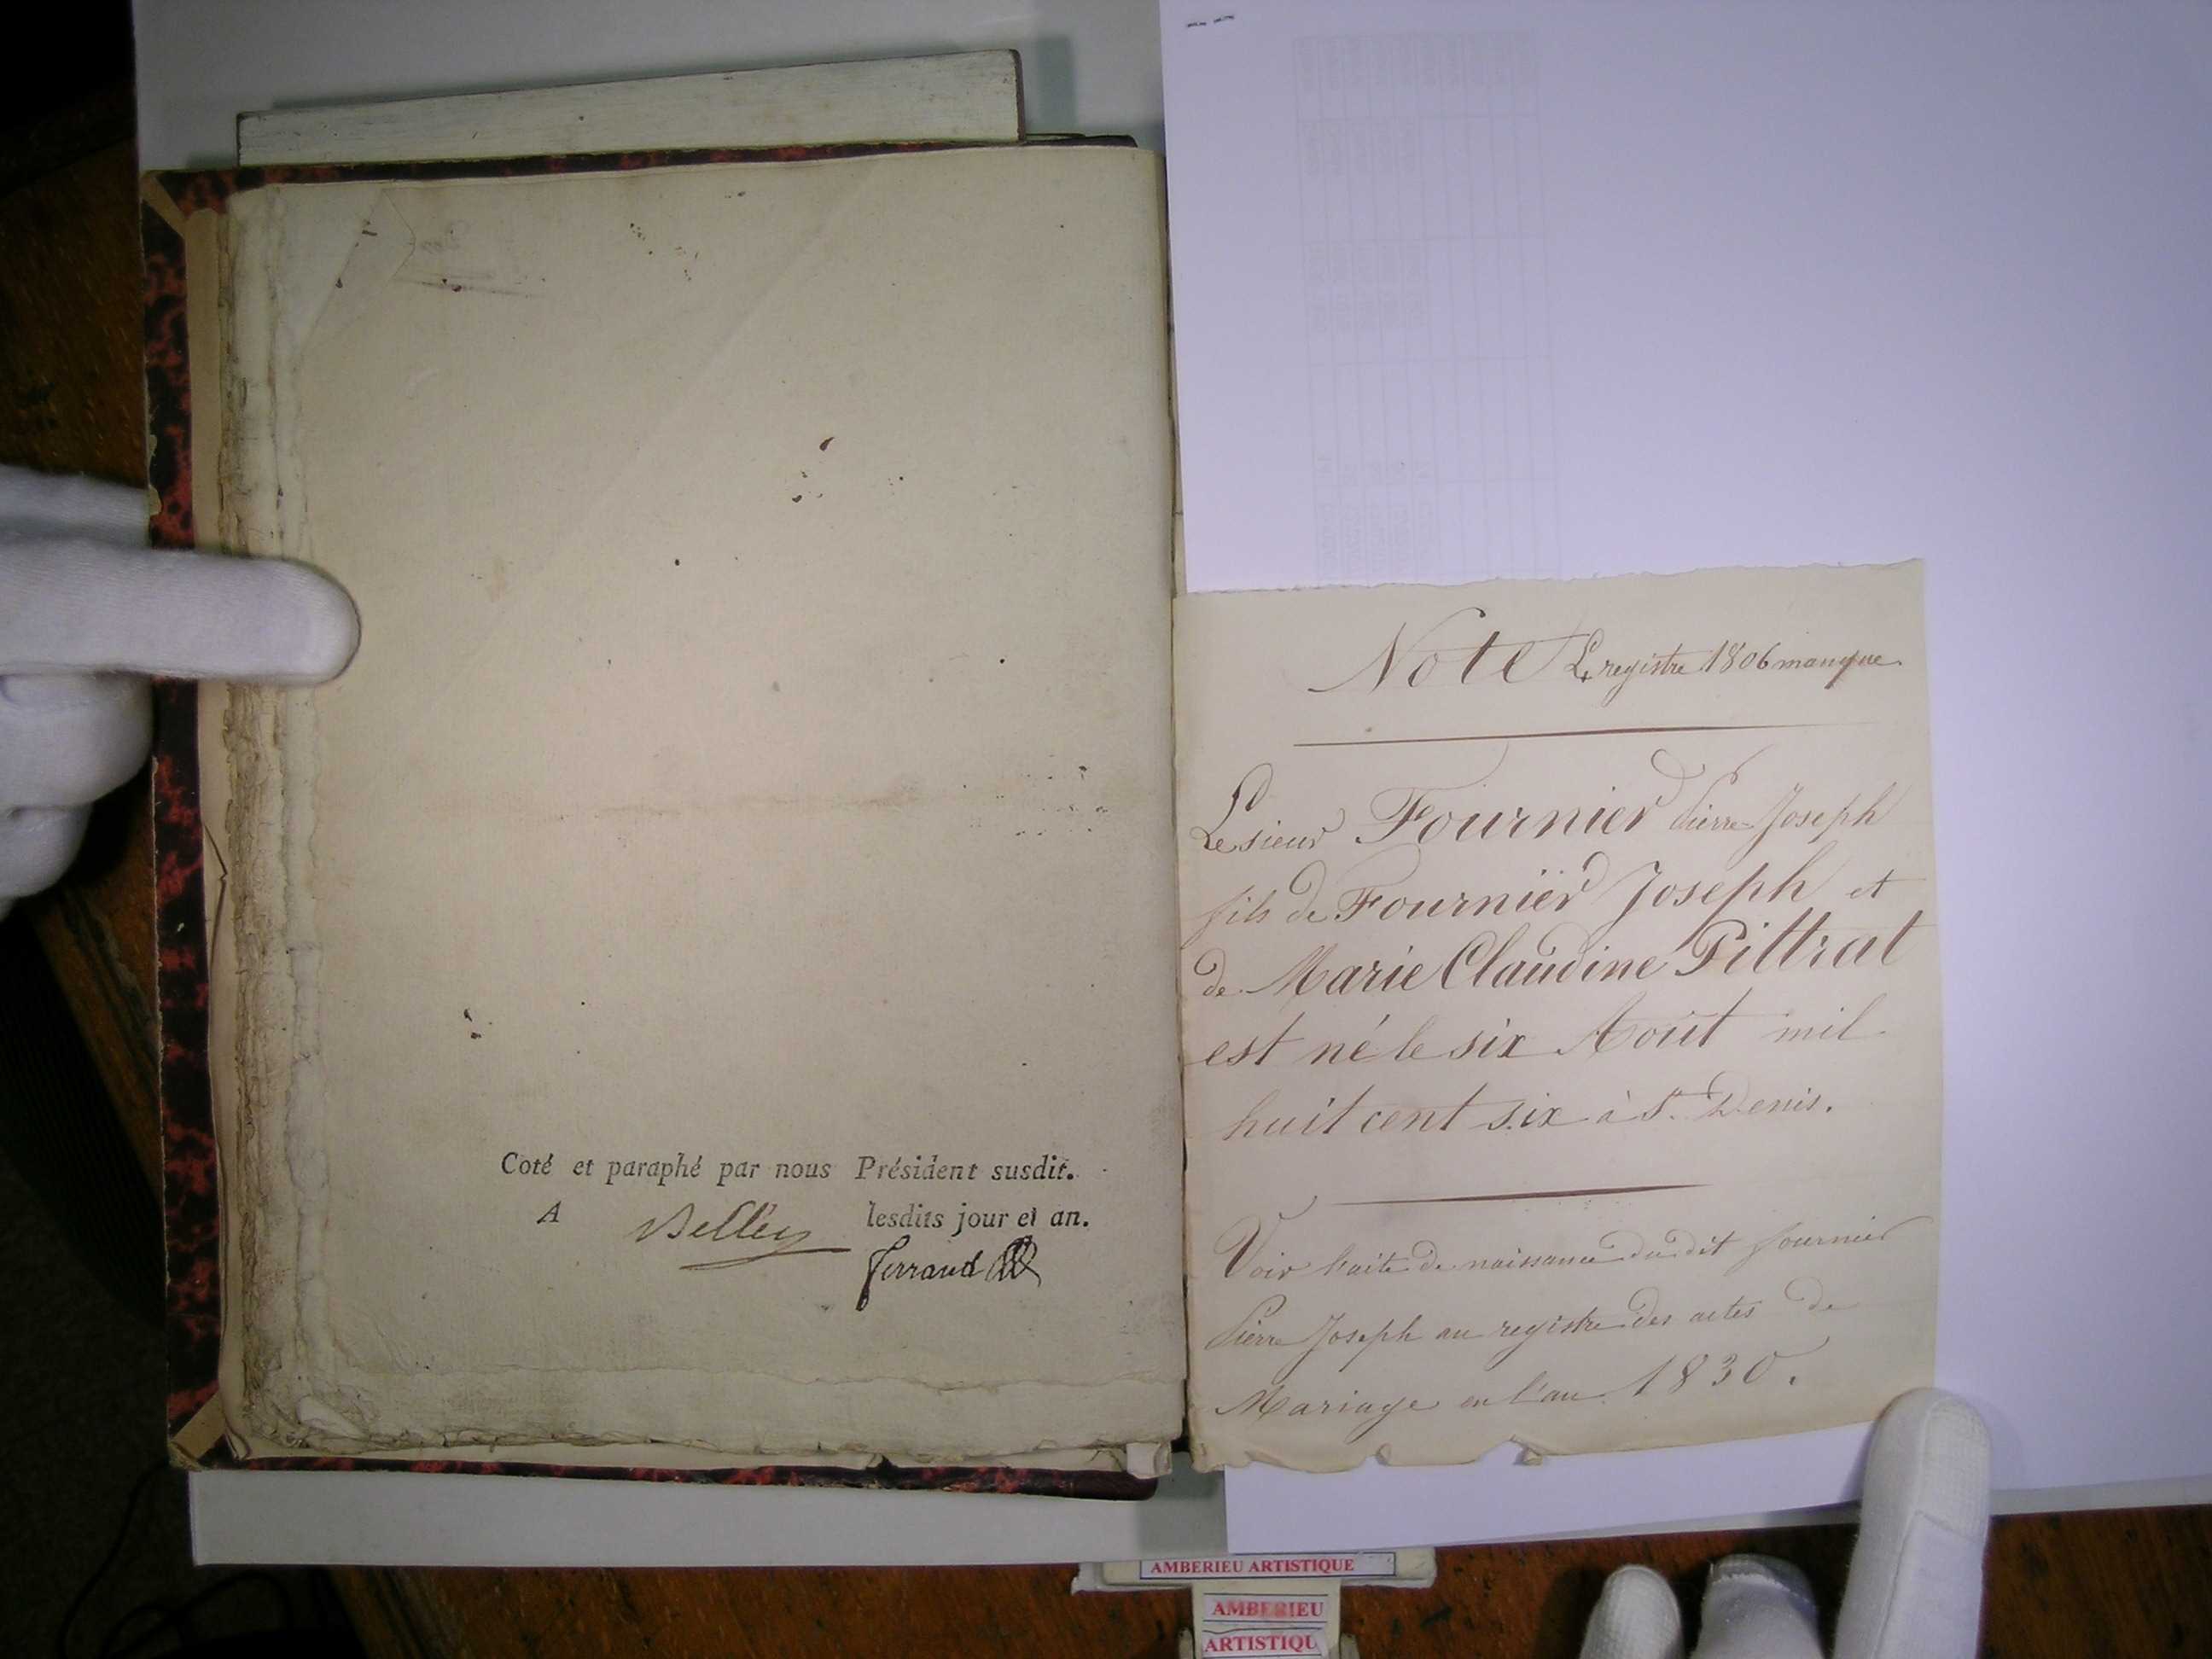 Coté et paraphé par nous Président susdit.
A Belley lesdits jour et an.
Ferrand
Note Le registre 1806 manque.
Le sieur Fournier Pierre Joseph
fils de Fournier Joseph et
de Marie Claudine Pittrat
est né le six Août mil
huit cent six à St. Denis.
Voir l'acte de naissance du dit fournier
Pierre Joseph au registre des actes de
Mariage en l'an 1830.
AMBERIEU ARTISTIQUE
AMBERIEU
ARTISTIQU